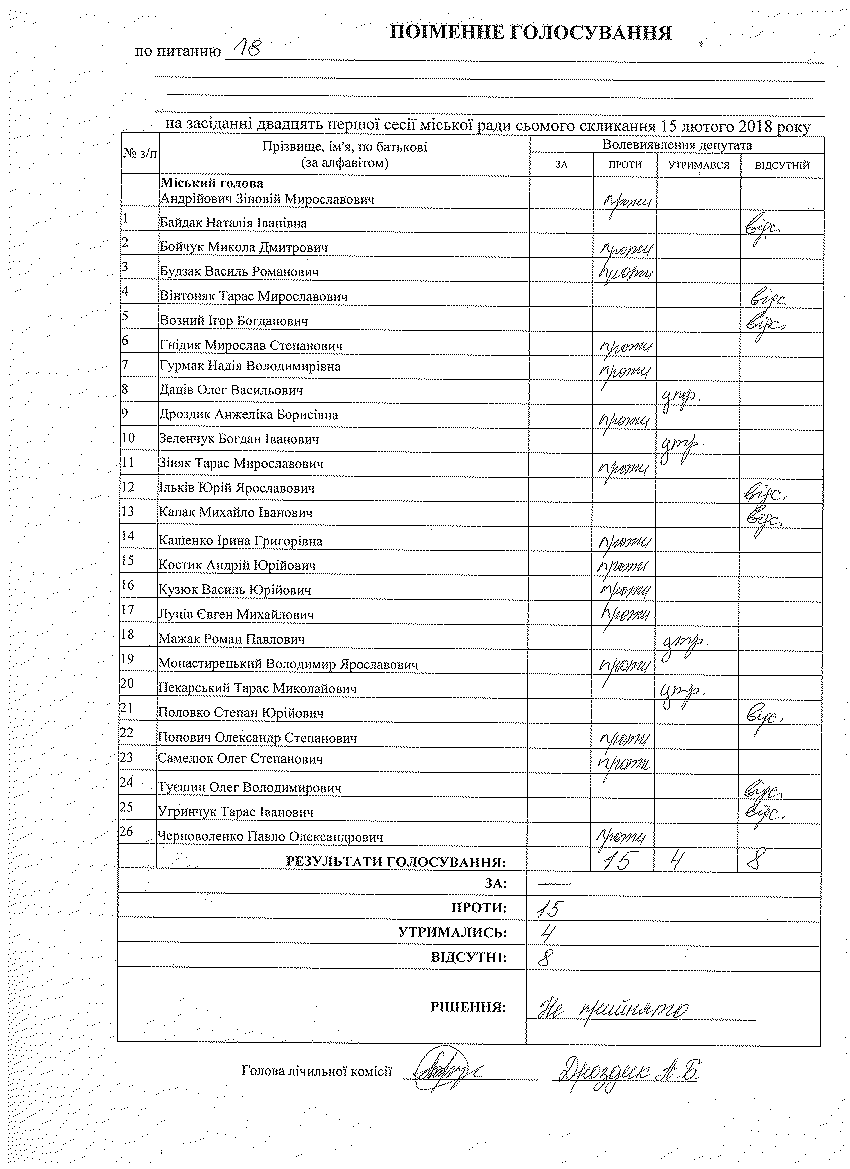 ПОІМЕННЕ ГОЛОСУВАННЯ
по питанню 18
на засіданні двадцять першої сесії міської ради сьомого скликання 15 лютого 2018 року
№ з/п Прізвище, ім'я, по батькові (за алфавітом) Волевиявлення депутата
ЗА ПРОТИ УТРИМАВСЯ ВІДСУТНІЙ
Міський голова
Андрійович Зіновій Мирославович проти
1 Байдак Наталія Іванівна відс.
2 Бойчук Микола Дмитрович проти
3 Будзак Василь Романович проти
4 Вінтоняк Тарас Мирославович відс
5 Возний Ігор Богданович відс.
6 Гнідик Мирослав Степанович проти
7 Гурмак Надія Володимирівна проти
8 Даців Олег Васильович утр.
9 Дроздик Анжеліка Борисівна проти
10 Зеленчук Богдан Іванович утр.
11 Зіняк Тарас Мирославович проти
12 Ільків Юрій Ярославович відс.
13 Капак Михайло Іванович відс.
14 Кащенко Ірина Григорівна проти
15 Костик Андрій Юрійович проти
16 Кузюк Василь Юрійович проти
17 Луців Євген Михайлович проти
18 Мажак Роман Павлович утр.
19 Монастирецький Володимир Ярославович проти
20 Пекарський Тарас Миколайович утр.
21 Половко Степан Юрійович відс.
22 Попович Олександр Степанович проти
23 Самелюк Олег Степанович проти
24 Олег Володимирович відс.
25 Угринчук Тарас Іванович відс.
26 Черноволенко Павло Олександрович проти
РЕЗУЛЬТАТИ ГОЛОСУВАННЯ: 15 4 8
ЗА: —
ПРОТИ: 15
УТРИМАЛИСЬ: 4
ВІДСУТНІ: 8
РІШЕННЯ: Не прийнято
Голова лічильної комісії Дроздик А.Б